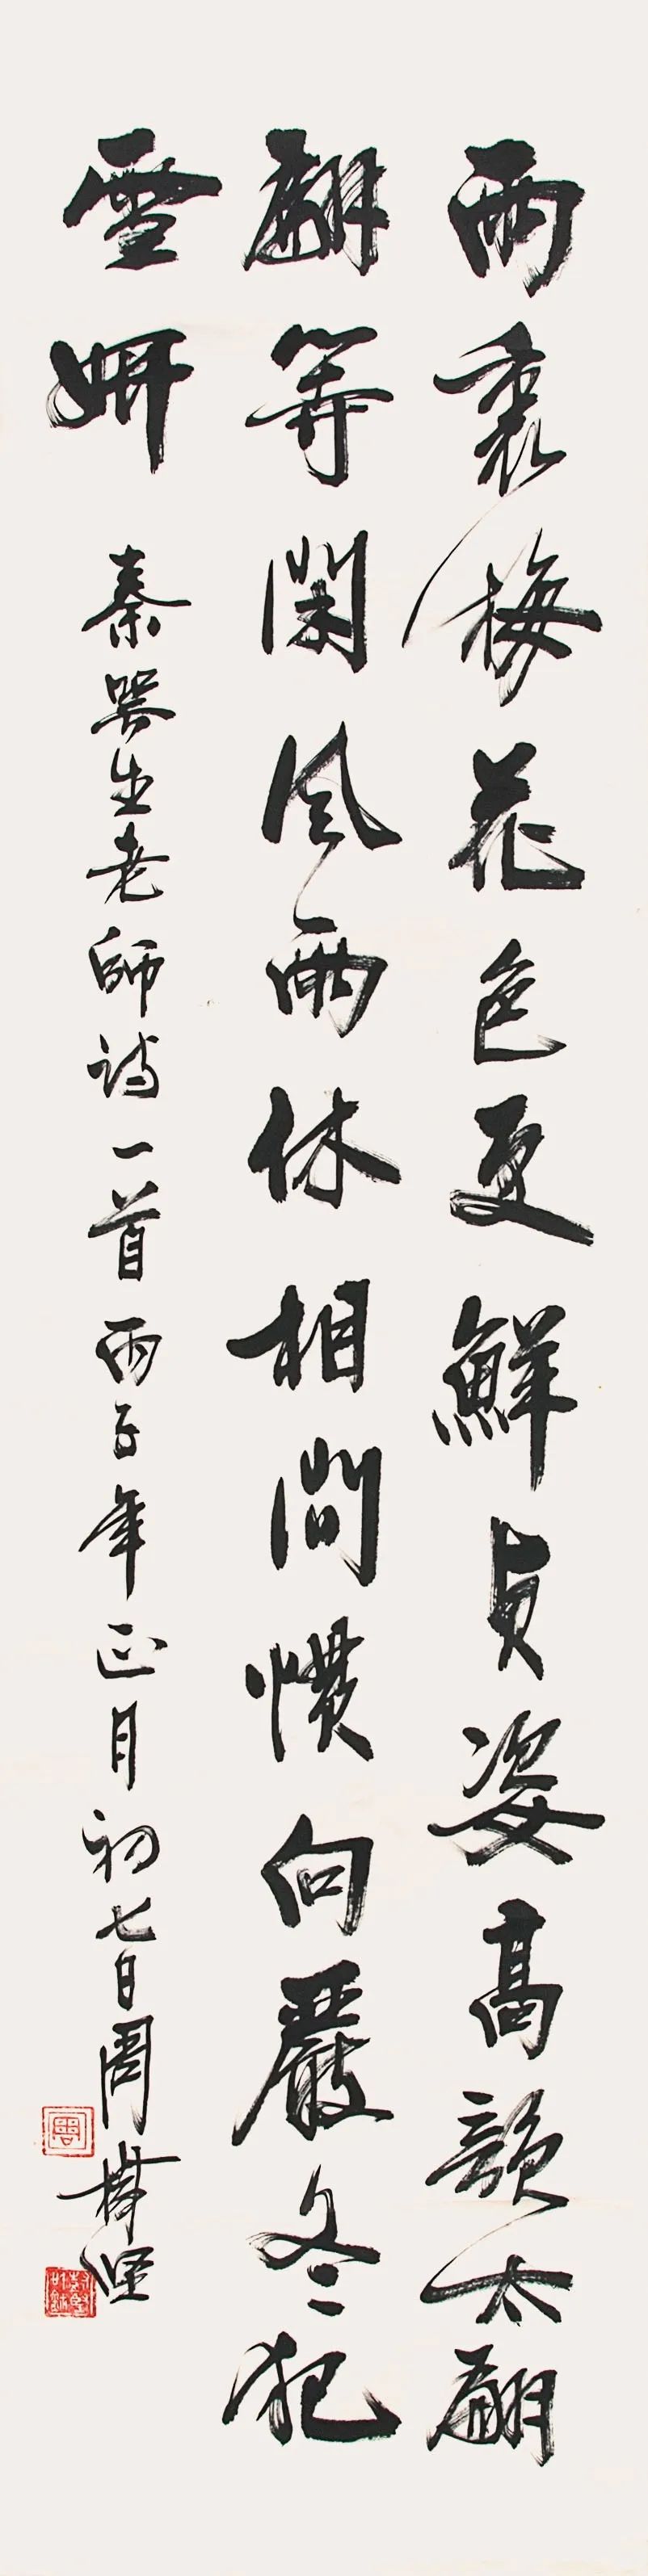 雨裏梅花色更鮮貞姿高韻太翩
翩等閑風雨休相問慣向嚴冬犯
雪妍 秦咢生老師詩一首丙子年正月初七日周樹堅